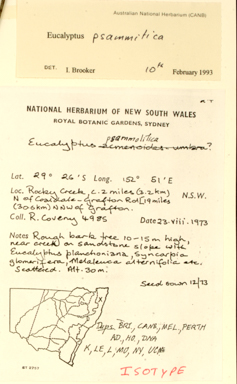 Australian National Herbarium (CANB)
Eucalyptus psammitica
DET: I. Brooker 10th February 1993
NATIONAL HERBARIUM OF NEW SOUTH WALES
ROYAL BOTANIC GARDENS, SYDNEY
psammitica
Eucalyptus acmenoides umbra?
Lat. 29° 26'S Long. 152° 51'E
Loc. Rocky Creek, c. 2 miles (3.2km) N.S.W.
N of Coaldale - Grafton Rd (19 miles
(30.5km) NNW of Grafton.
Coll. R. Coveny 4985 Date 23.viii.1973
Notes Rough bark tree 10-15 m high,
near creek on sandstone slope with
Eucalyptus planchoniana, Syncarpia
glomulifera, Melaleuca alternifolia etc.
Scattered. Alt. 30m.
Seed sown 12/73
Dups. BRI, CANB, MEL, PERTH
AD, HO, DNA
K, LE, L, MO, NY,
ISOTYPE